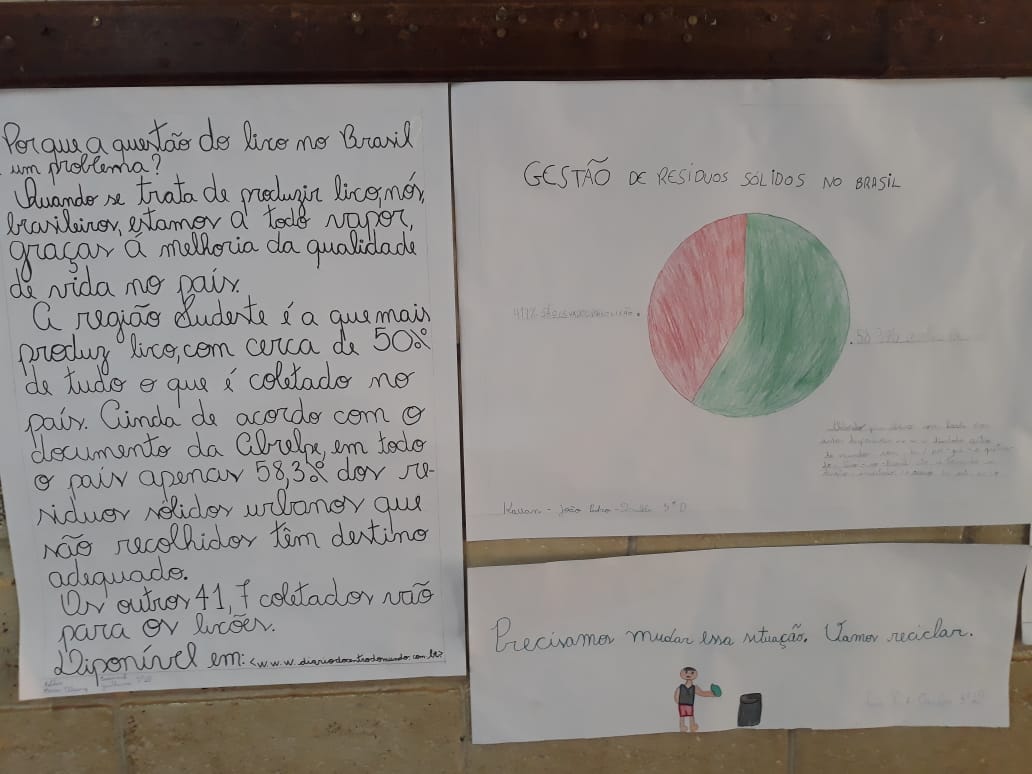 Porque a questão do lixo no Brasil
um problema?
Quando se trata de produzir lixo, nós,
brasileiros, estamos a todo vapor,
graças a melhoria da qualidade
de vida no país.
A região Sudeste é a que mais
produz lixo, com cerca de 50%
de tudo o que é coletado no
país. Ainda de acordo com o
documento da Abrelpe, em todo
o país apenas 58,3% dos re-
síduos sólidos urbanos que
são recolhidos têm destino
adequado.
Os outros 41,7 coletados vão
para os lixões.
Diponível em: <www.diariodocentrodomundo.com.br>
GESTÃO DE RESÍDUOS SÓLIDOS NO BRASIL
41,7% SÃO LEVADOS PARA O LIXÃO.
Kauan - João Pedro - 5º D
Precisamos mudar essa situação. Vamos reciclar.